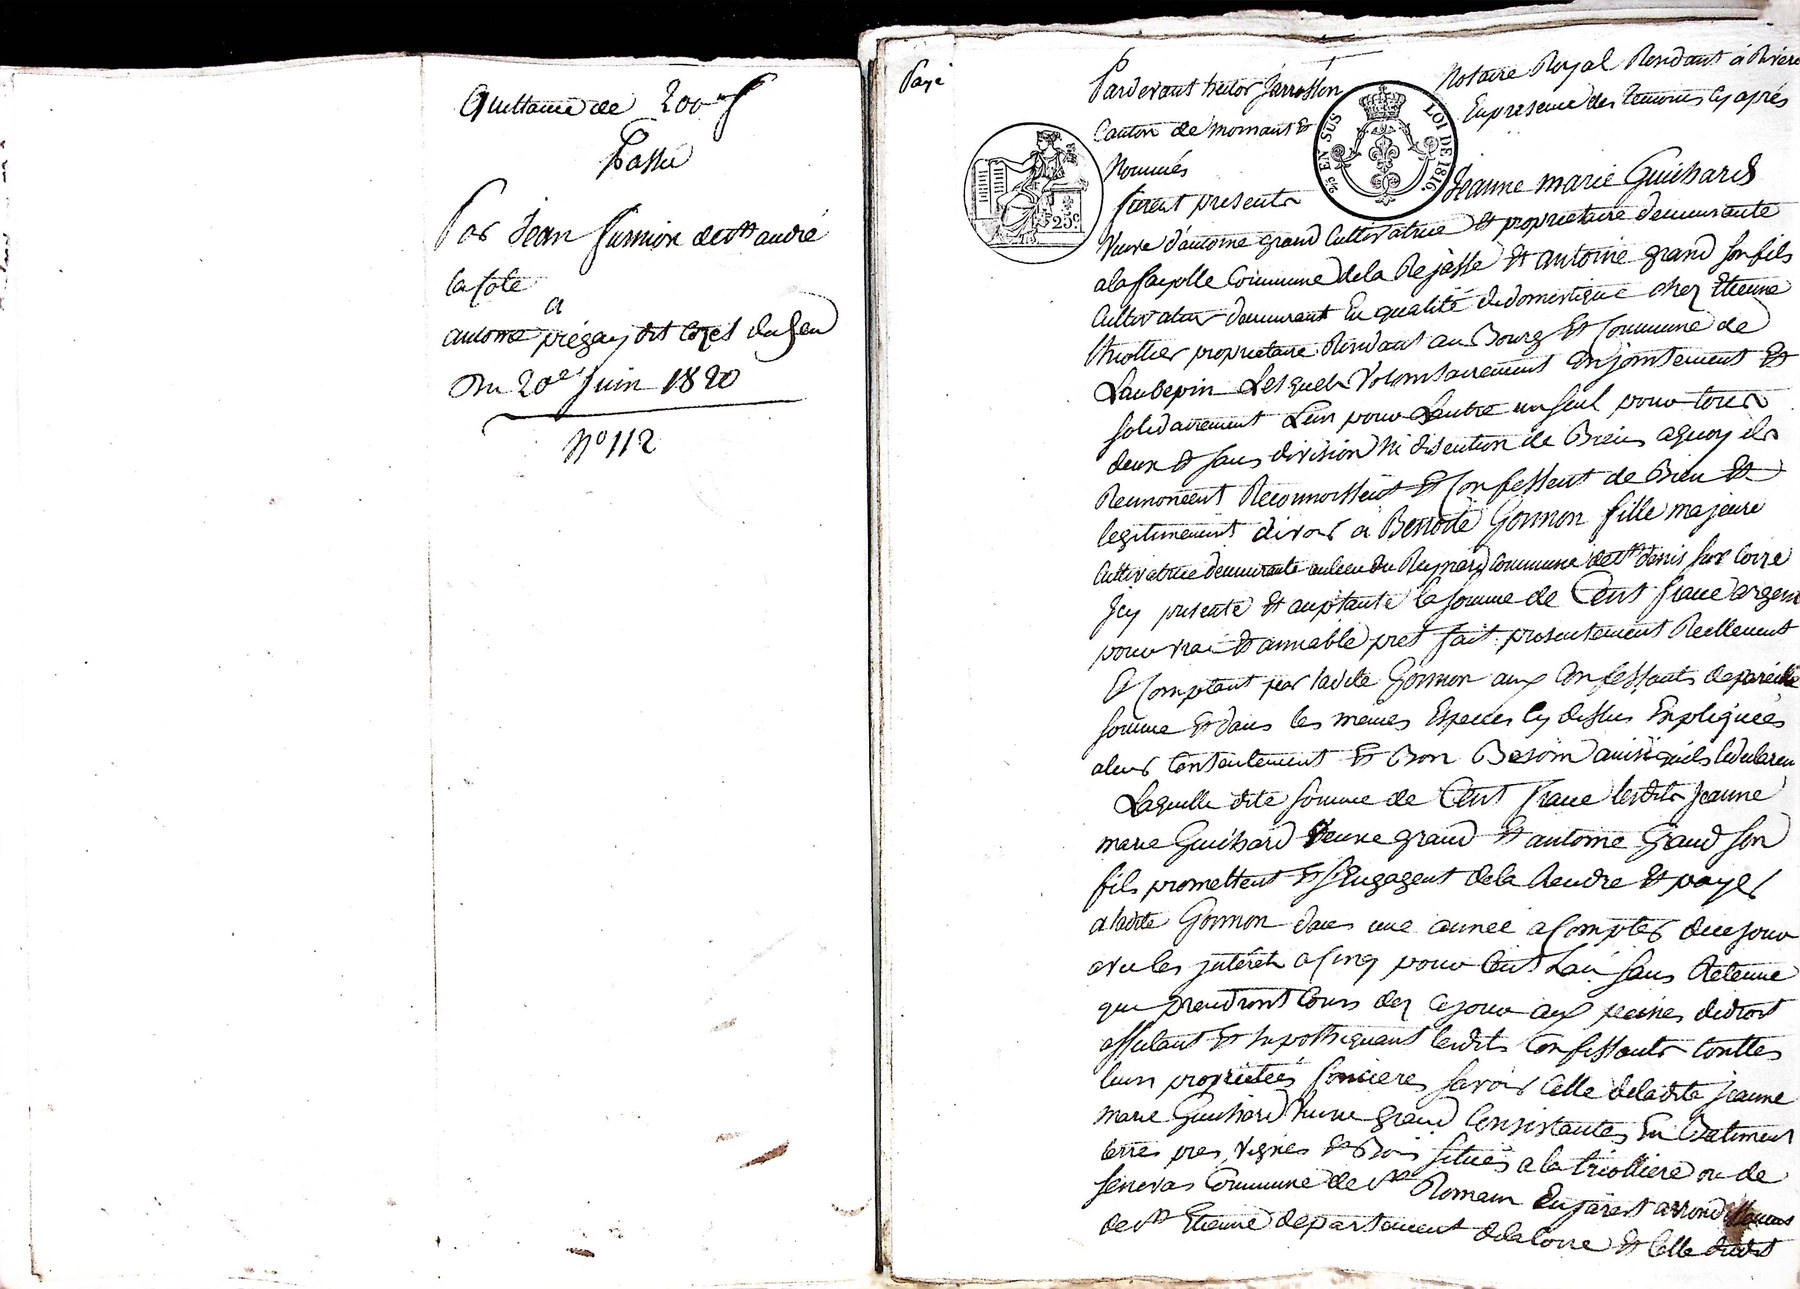 Quittance de 200 f
Passé
Par Jean furnion de St andré
la Cote
a
antoine piégay dit
du 20e Juin 1820
N° 112
Payé
Pardevant hector Jarrossen Notaire Royal Residant à Riverie
Canton de mornant Et En presence des temoins Cy après
Nommés
furent presents Jeanne marie Guichard
Veuve d'antoine grand Cultivatrice Et propriétaire demeurante
a la fayolle Commune de la Rajasse Et antoine grand son fils
Cultivateur demeurant En qualité de domestique chez Etienne
thiollier propriétaire Residant au Bourg Et Commune de
Laubepin Lesquels Volontairement Conjointement Et
Solidairement L'un pour L'autre un seul pour tous
deux Et sans division Ni discution de Biens aquoy ils
Renoncent Reconnoissent Et Confessent de Bien Et
legitimement devoir a Benoite Gonnon fille majeure
Cultivatrice demeurante au lieu du Reynard Commune de St denis sur Coize
Icy presente Et aceptante la somme de Cent franc argent
pour vrai Et amiable pret fait presentement Reellement
Et Comptant par ladite Gonnon aux Confessants de pareille
somme Et dans les memes Especes Cy dessus Expliquées
a leur Contentement Et Bon Besoin ainsi qu'ils le declarent
Laquelle dite somme de Cent franc lesdits Jeanne
marie Guichard Veuve grand Et antoine Grand son
fils promettent Et s'Engagent de la Rendre Et payer
a ladite Gonnon dans une année a Compter de ce jour
avec les jntérêts a Cinq pour Cent L'an sans Retenue
qui prendront Cours dez ce jour aux peines de droit
affectant Et hypothequant lesdits Confessants touttes
leurs propriétées foncieres savoir Celle de ladite Jeanne
marie Guichard Veuve grand Consistantes En Batiment
terres pres Vignes Et Bois situés a la triolliere ou de
Senevas Commune de St Romain En Jarest arrondissement
de St Etienne departement de la loire Et Celle dudit
25c.
5/25 EN SUS LOI DE 1816